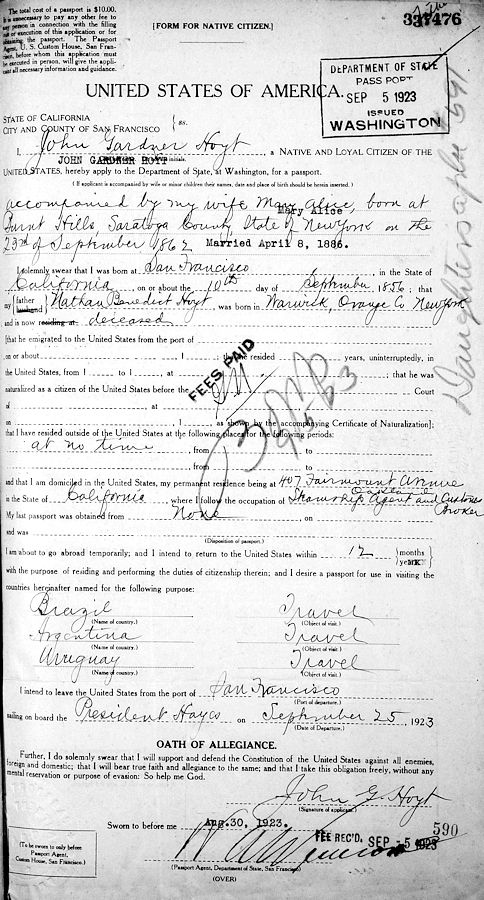 The total cost of a passport is $10.00.
It is unnecessary to pay any other fee to
any person in connection with the filling
out or execution of this application or for
obtaining the passport. The Passport
Agent, U. S. Custom House, San Fran-
cisco, before whom this application must
be executed in person, will give the appli-
cant all necessary information and guidance.
[FORM FOR NATIVE CITIZEN.]
337476
DEPARTMENT OF STATE
PASSPORT
SEP 5 1923
ISSUED
WASHINGTON
UNITED STATES OF AMERICA.
STATE OF CALIFORNIA
CITY AND COUNTY OF SAN FRANCISCO } ss.
I, John Gardner Hoyt, a NATIVE AND LOYAL CITIZEN OF THE
JOHN GARDNER HOYT initials.
UNITED STATES, hereby apply to the Department of State, at Washington, for a passport.
( If applicant is accompanied by wife or minor children their names, date and place of birth should be herein inserted. )
accompanied by my wife Mary Alice, born at
Mary Alice
Burnt Hills, Saratoga County, State of New York on the
23rd of September 1862 Married April 8, 1886.
I solemnly swear that I was born at San Francisco, in the State of
California, on or about the 10th day of September, 1856; that
my { father husband } Nathan Benedict Hoyt, was born in Warwick, Orange Co New York
and is now residing at deceased
[that he emigrated to the United States from the port of
on or about , 1 ; that he resided years, uninterruptedly, in
the United States, from 1 to 1 , at ; that he was
naturalized as a citizen of the United States before the Court
of at
on , 1 , as shown by the accompanying Certificate of Naturalization];
FEES PAID
that I have resided outside of the United States at the following places for the following periods:
at no time, from to
, from to
and that I am domiciled in the United States, my permanent residence being at 407 Fairmount Avenue
Oakland
in the State of California where I follow the occupation of Steamship Agent and Customs
Broker
My last passport was obtained from None on
and was
(Disposition of passport.)
I am about to go abroad temporarily; and I intend to return to the United States within 12 { months
with the purpose of residing and performing the duties of citizenship therein; and I desire a passport for use in visiting the
countries hereinafter named for the following purpose:
Brazil Travel
(Name of country.) (Object of visit.)
Argentina Travel
(Name of country.) (Object of visit.)
Uruguay Travel
(Name of country.) (Object of visit.)
I intend to leave the United States from the port of San Francisco
(Port of departure.)
sailing on board the President Hayes on September 25, 1923
(Date of Departure.)
OATH OF ALLEGIANCE.
Further, I do solemnly swear that I will support and defend the Constitution of the United States against all enemies,
foreign and domestic; that I will bear true faith and allegiance to the same; and that I take this obligation freely, without any
mental reservation or purpose of evasion: So help me God.
John G. Hoyt
(Signature of applicant.)
Sworn to before me Aug. 30, 1923.
590
FEE REC'D. SEP - 5 1923
(To be sworn to only before
Passport Agent,
Custom House, San Francisco.)
(Passport Agent, Department of State, San Francisco)
(OVER)